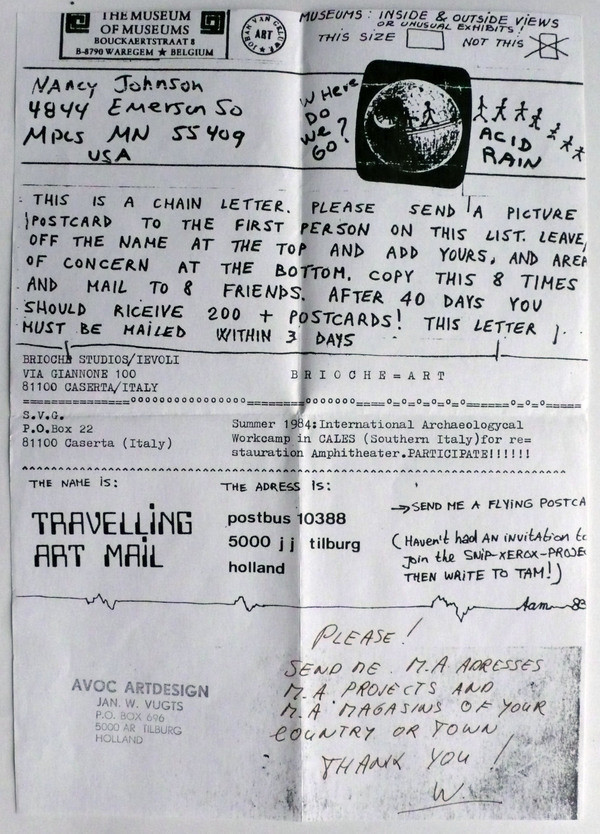 THE MUSEUM
OF MUSEUMS
BOUCKAERTSTRAAT 8
B-8790 WAREGEM ★ BELGIUM
JOHAN VAN GELUWE
ART
MUSEUMS: INSIDE & OUTSIDE VIEWS
OR UNUSUAL EXHIBITS!
THIS SIZE
NOT THIS
NANCY Johnson
4844 Emerson So
Mpls MN 55409
USA
Where
Do
We
GO?
ACID
RAIN
THIS IS A CHAIN LETTER. PLEASE SEND A PICTURE
POSTCARD TO THE FIRST PERSON ON THIS LIST. LEAVE
OFF THE NAME AT THE TOP AND ADD YOURS, AND AREA
OF CONCERN AT THE BOTTOM. COPY THIS 8 TIMES
AND MAIL TO 8 FRIENDS. AFTER 40 DAYS YOU
SHOULD RICEIVE 200 + POSTCARDS! THIS LETTER
MUST BE MAILED WITHIN 3 DAYS
BRIOCHE STUDIOS/IEVOLI
VIA GIANNONE 100
81100 CASERTA/ITALY
BRIOCHE=ART
S.V.G.
P.O.Box 22
81100 Caserta (Italy)
Summer 1984:International Archaeologycal
Workcamp in CALES (Southern Italy)for re=
stauration Amphitheater.PARTICIPATE!!!!!!
THE NAME IS:
TRAVELLING
ART MAIL
THE ADRESS IS:
postbus 10388
5000 jj tilburg
holland
→SEND ME A FLYING POSTCA
(Haven't had AN invitation to
join the SNIP-XEROX-PROJE
THEN WRITE TO TAM!)
Aam 83
AVOC ARTDESIGN
JAN. W. VUGTS
P.O. BOX 696
5000 AR TILBURG
HOLLAND
PLEASE!
SEND ME M.A ADRESSES
M.A PROJECTS AND
M.A MAGASINS OF YOUR
COUNTRY OR TOWN
THANK YOU!
W.